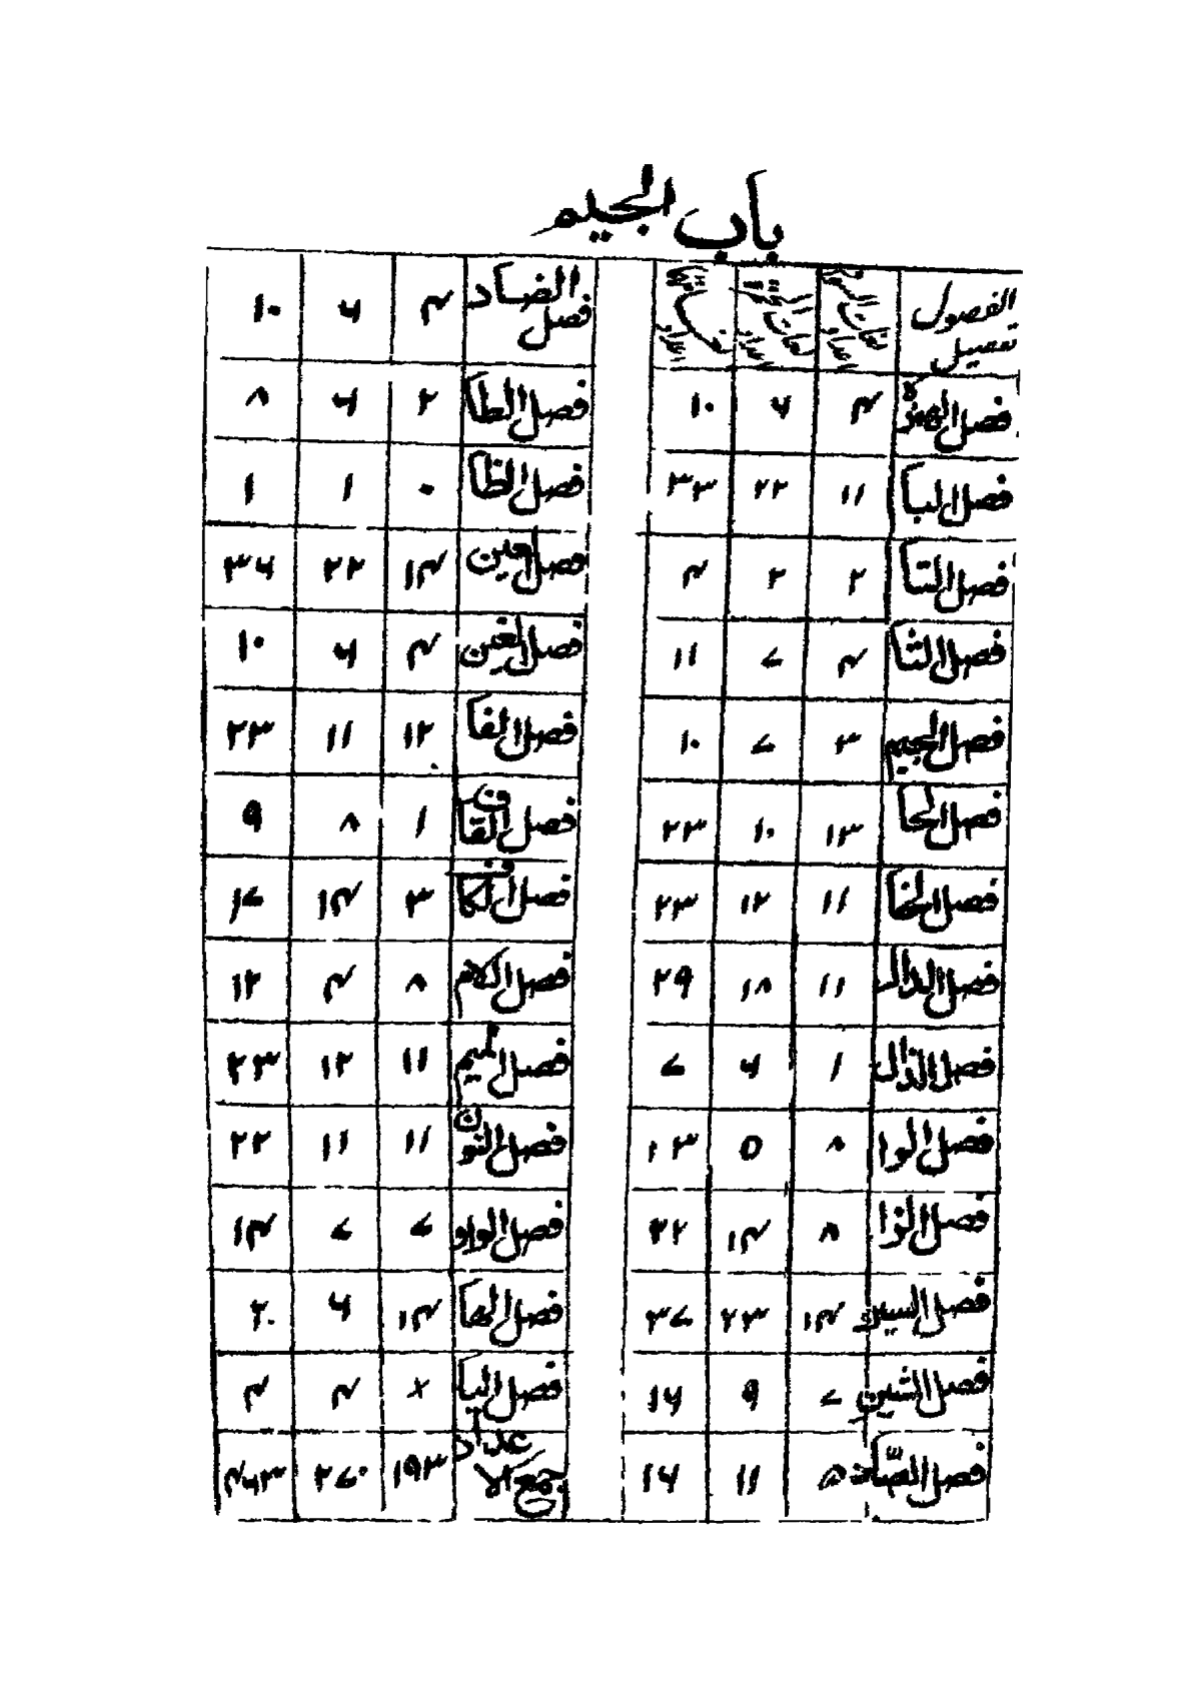 باب الجيم
الفصول
تفصيل
فصل الهمزة ۴ ۶ ۱۰
فصل البا ۱۱ ۲۲ ۳۳
فصل التا ۲ ۲ ۴
فصل الثا ۴ ۷ ۱۱
فصل الجيم ۳ ۷ ۱۰
فصل الحا ۱۳ ۱۰ ۲۳
فصل الخا ۱۱ ۱۲ ۲۳
فصل الدال ۱۱ ۱۸ ۲۹
فصل الذال ۱ ۶ ۷
فصل الرا ۸ ۵ ۱۳
فصل الزا ۸ ۱۴ ۲۲
فصل السين ۱۴ ۲۳ ۳۷
فصل الشين ۷ ۹ ۱۶
فصل الصاد ۵ ۱۱ ۱۶
فصل الضاد ۴ ۶ ۱۰
فصل الطا ۲ ۶ ۸
فصل الظا ۰ ۱ ۱
فصل العين ۱۴ ۲۲ ۳۶
فصل الغين ۴ ۶ ۱۰
فصل الفا ۱۲ ۱۱ ۲۳
فصل القاف ۱ ۸ ۹
فصل الكاف ۳ ۱۴ ۱۷
فصل اللام ۸ ۴ ۱۲
فصل الميم ۱۱ ۱۲ ۲۳
فصل النون ۱۱ ۱۱ ۲۲
فصل الواو ۷ ۷ ۱۴
فصل الها ۱۴ ۶ ۲۰
فصل اليا × ۴ ۴
جمع الاعداد ۱۹۳ ۲۷۰ ۴۶۳